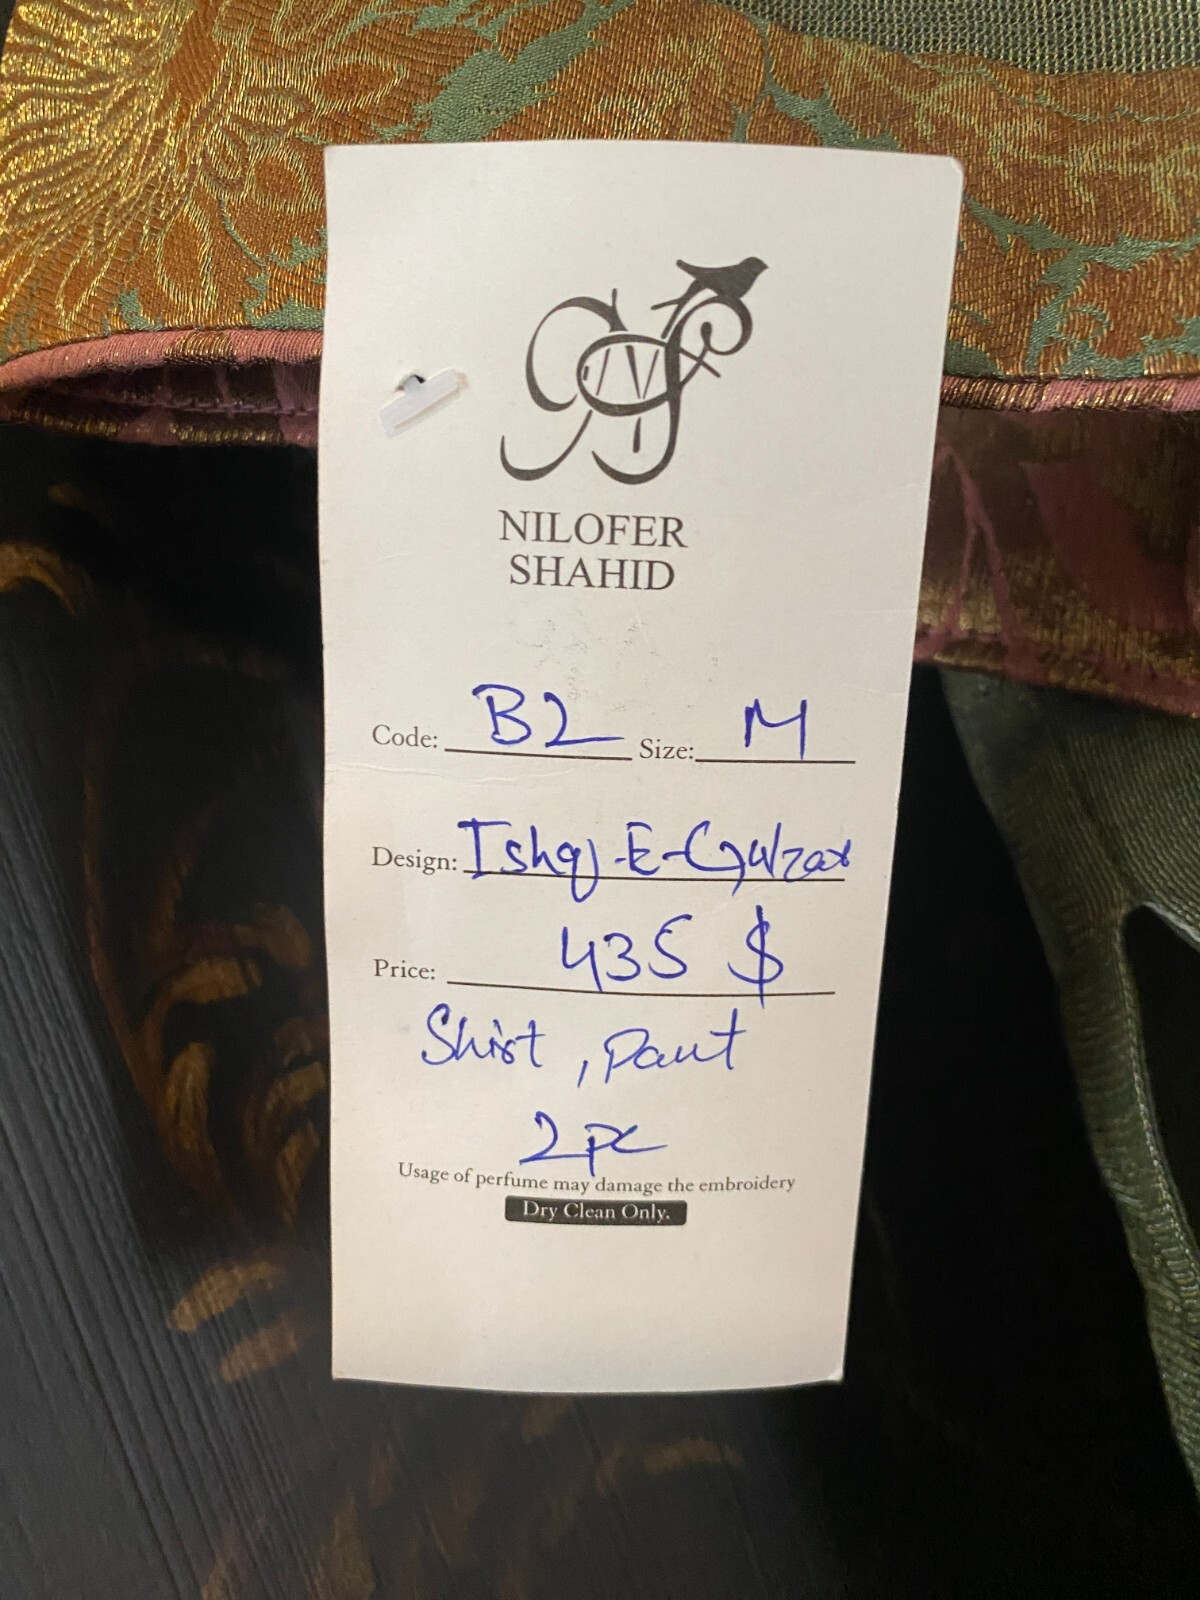 NILOFER
SHAHID
Code: B2 Size: M
Design: Ishq-E-Gulzar
Price: 435 $
Shirt, Pant
2 pc
Usage of perfume may damage the embroidery
Dry Clean Only.